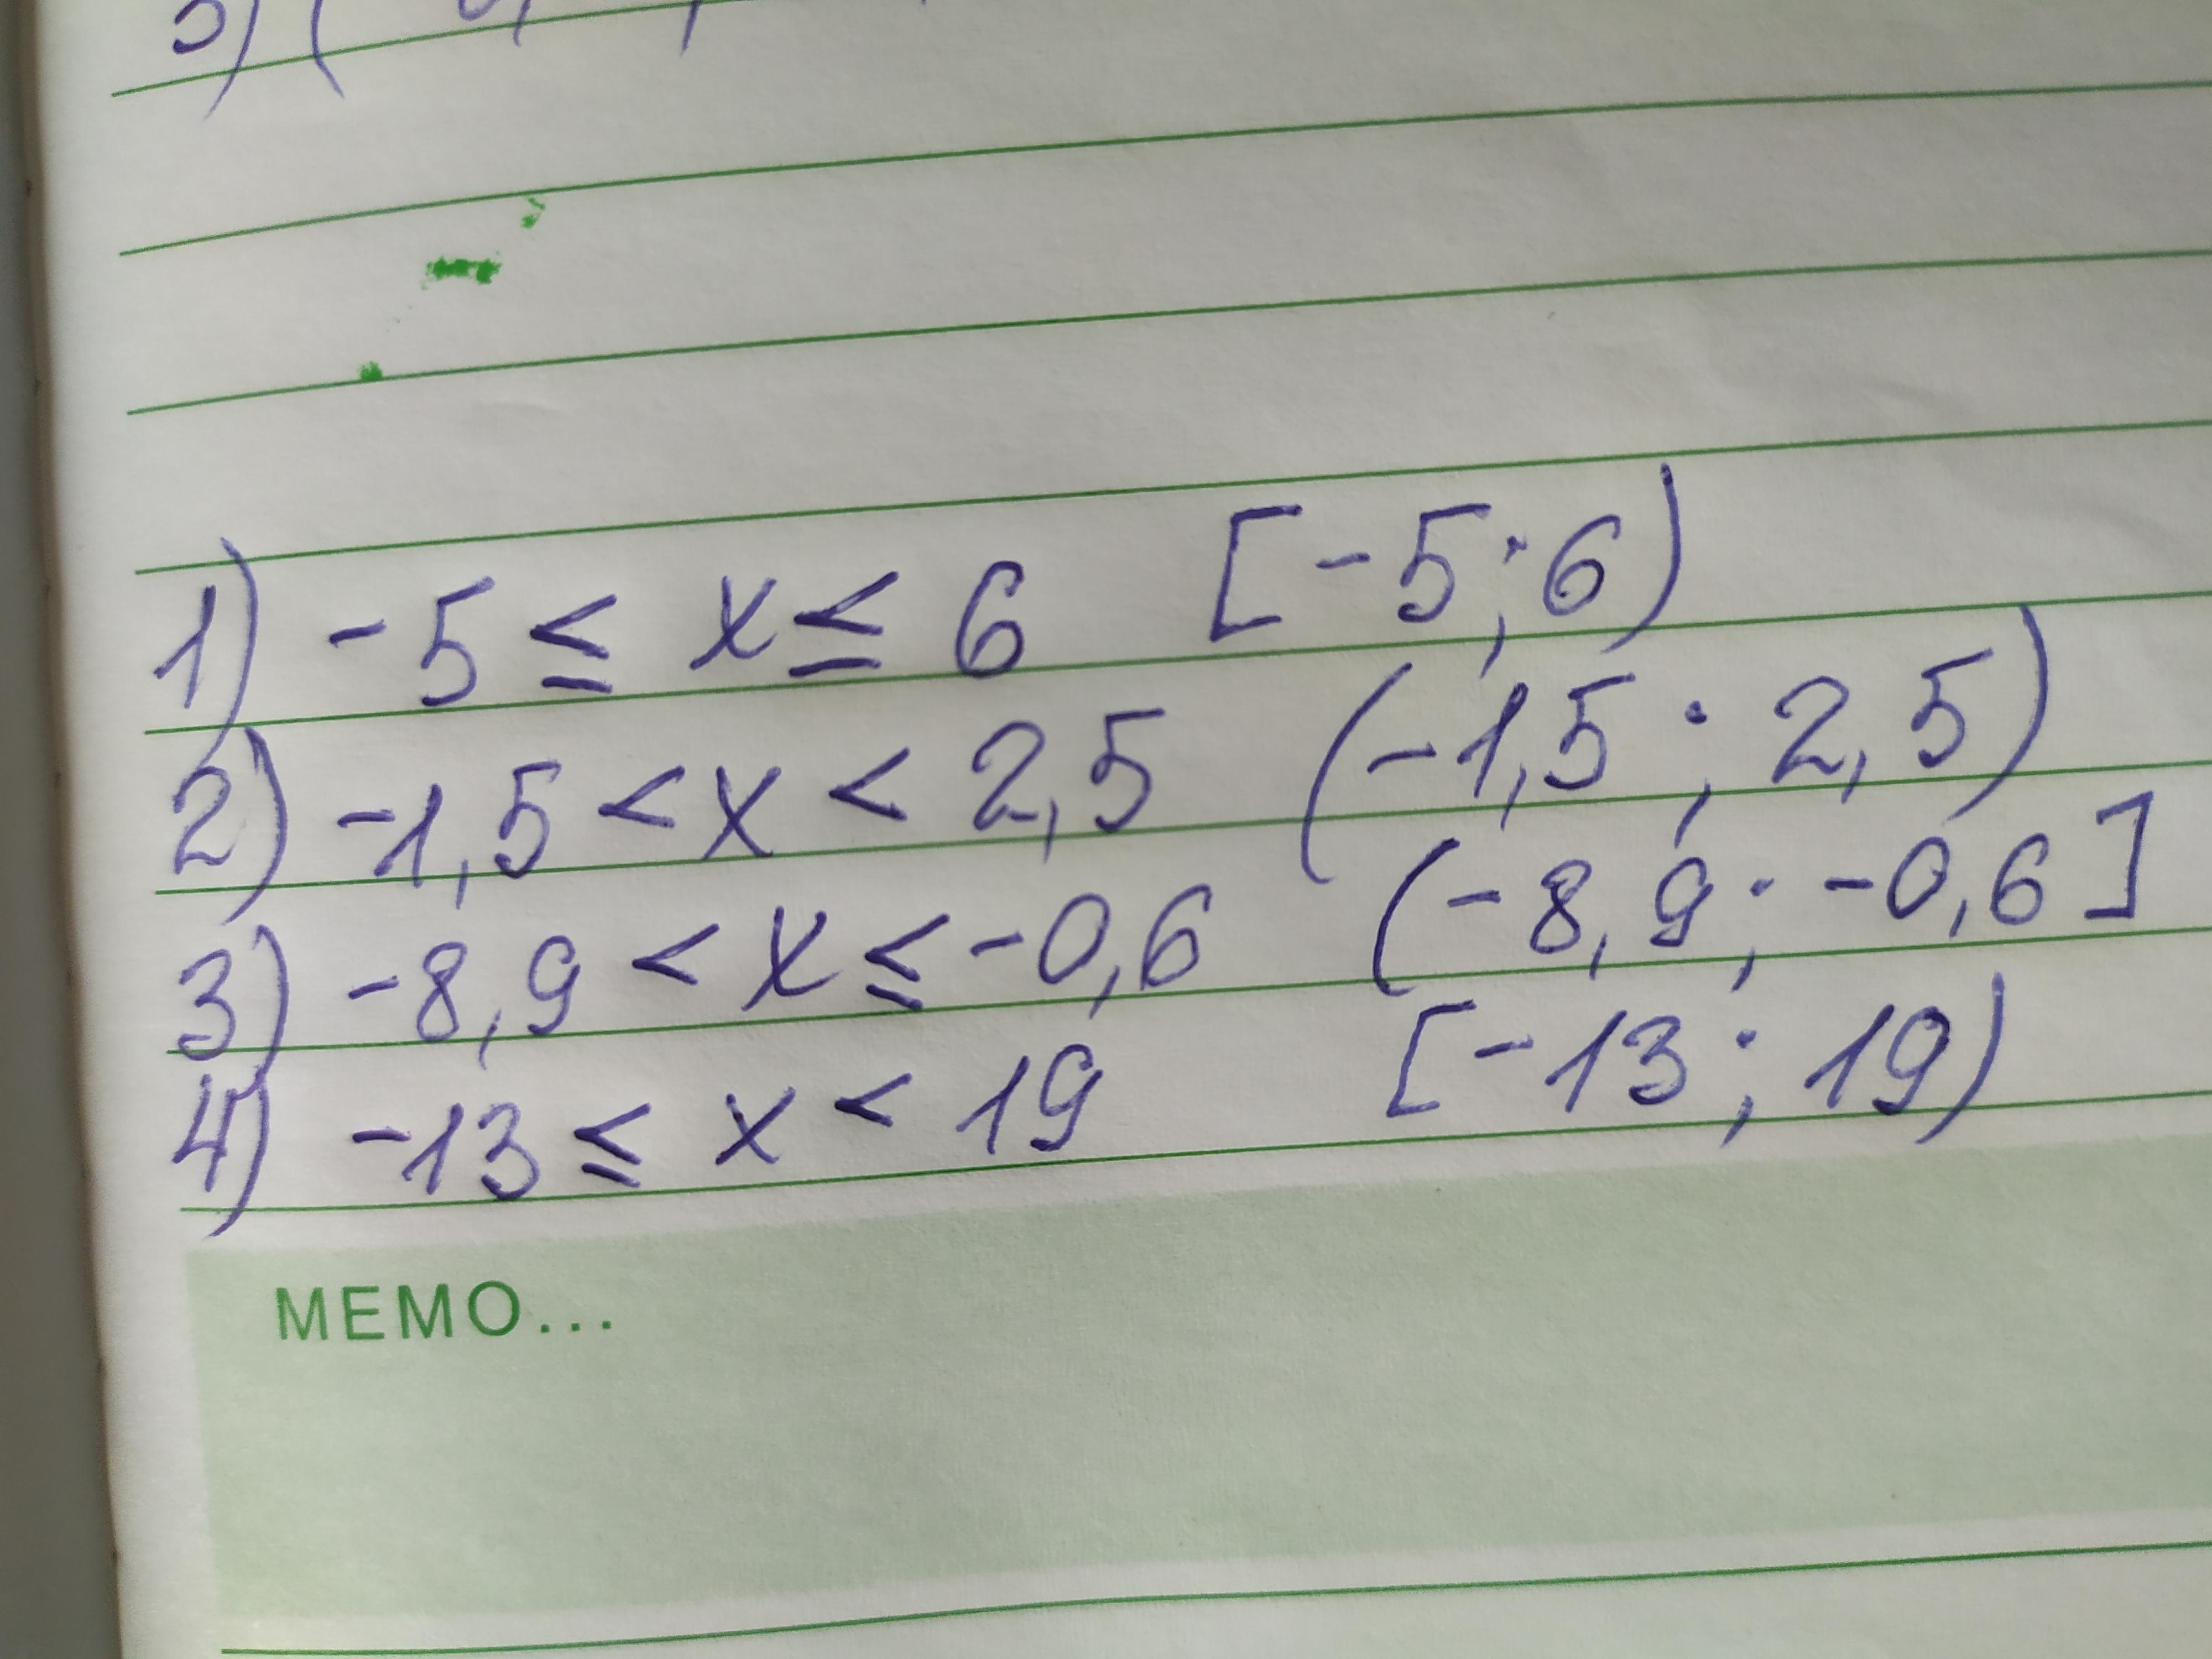 1) -5 ≤ x ≤ 6 [-5; 6)
2) -1,5 < x < 2,5 (-1,5; 2,5)
3) -8,9 < x ≤ -0,6 (-8,9; -0,6]
4) -13 ≤ x < 19 [-13; 19)
MEMO...